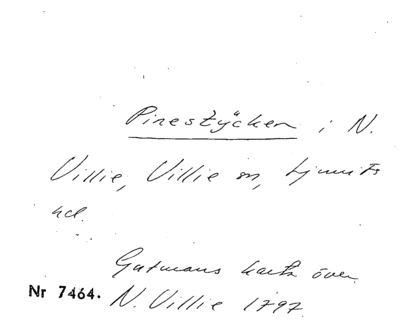 Pirestycken i N.
Villie, Villie sn, Ljunits
hd.
Gutmans karta över
Nr 7464.
N. Villie 1797.